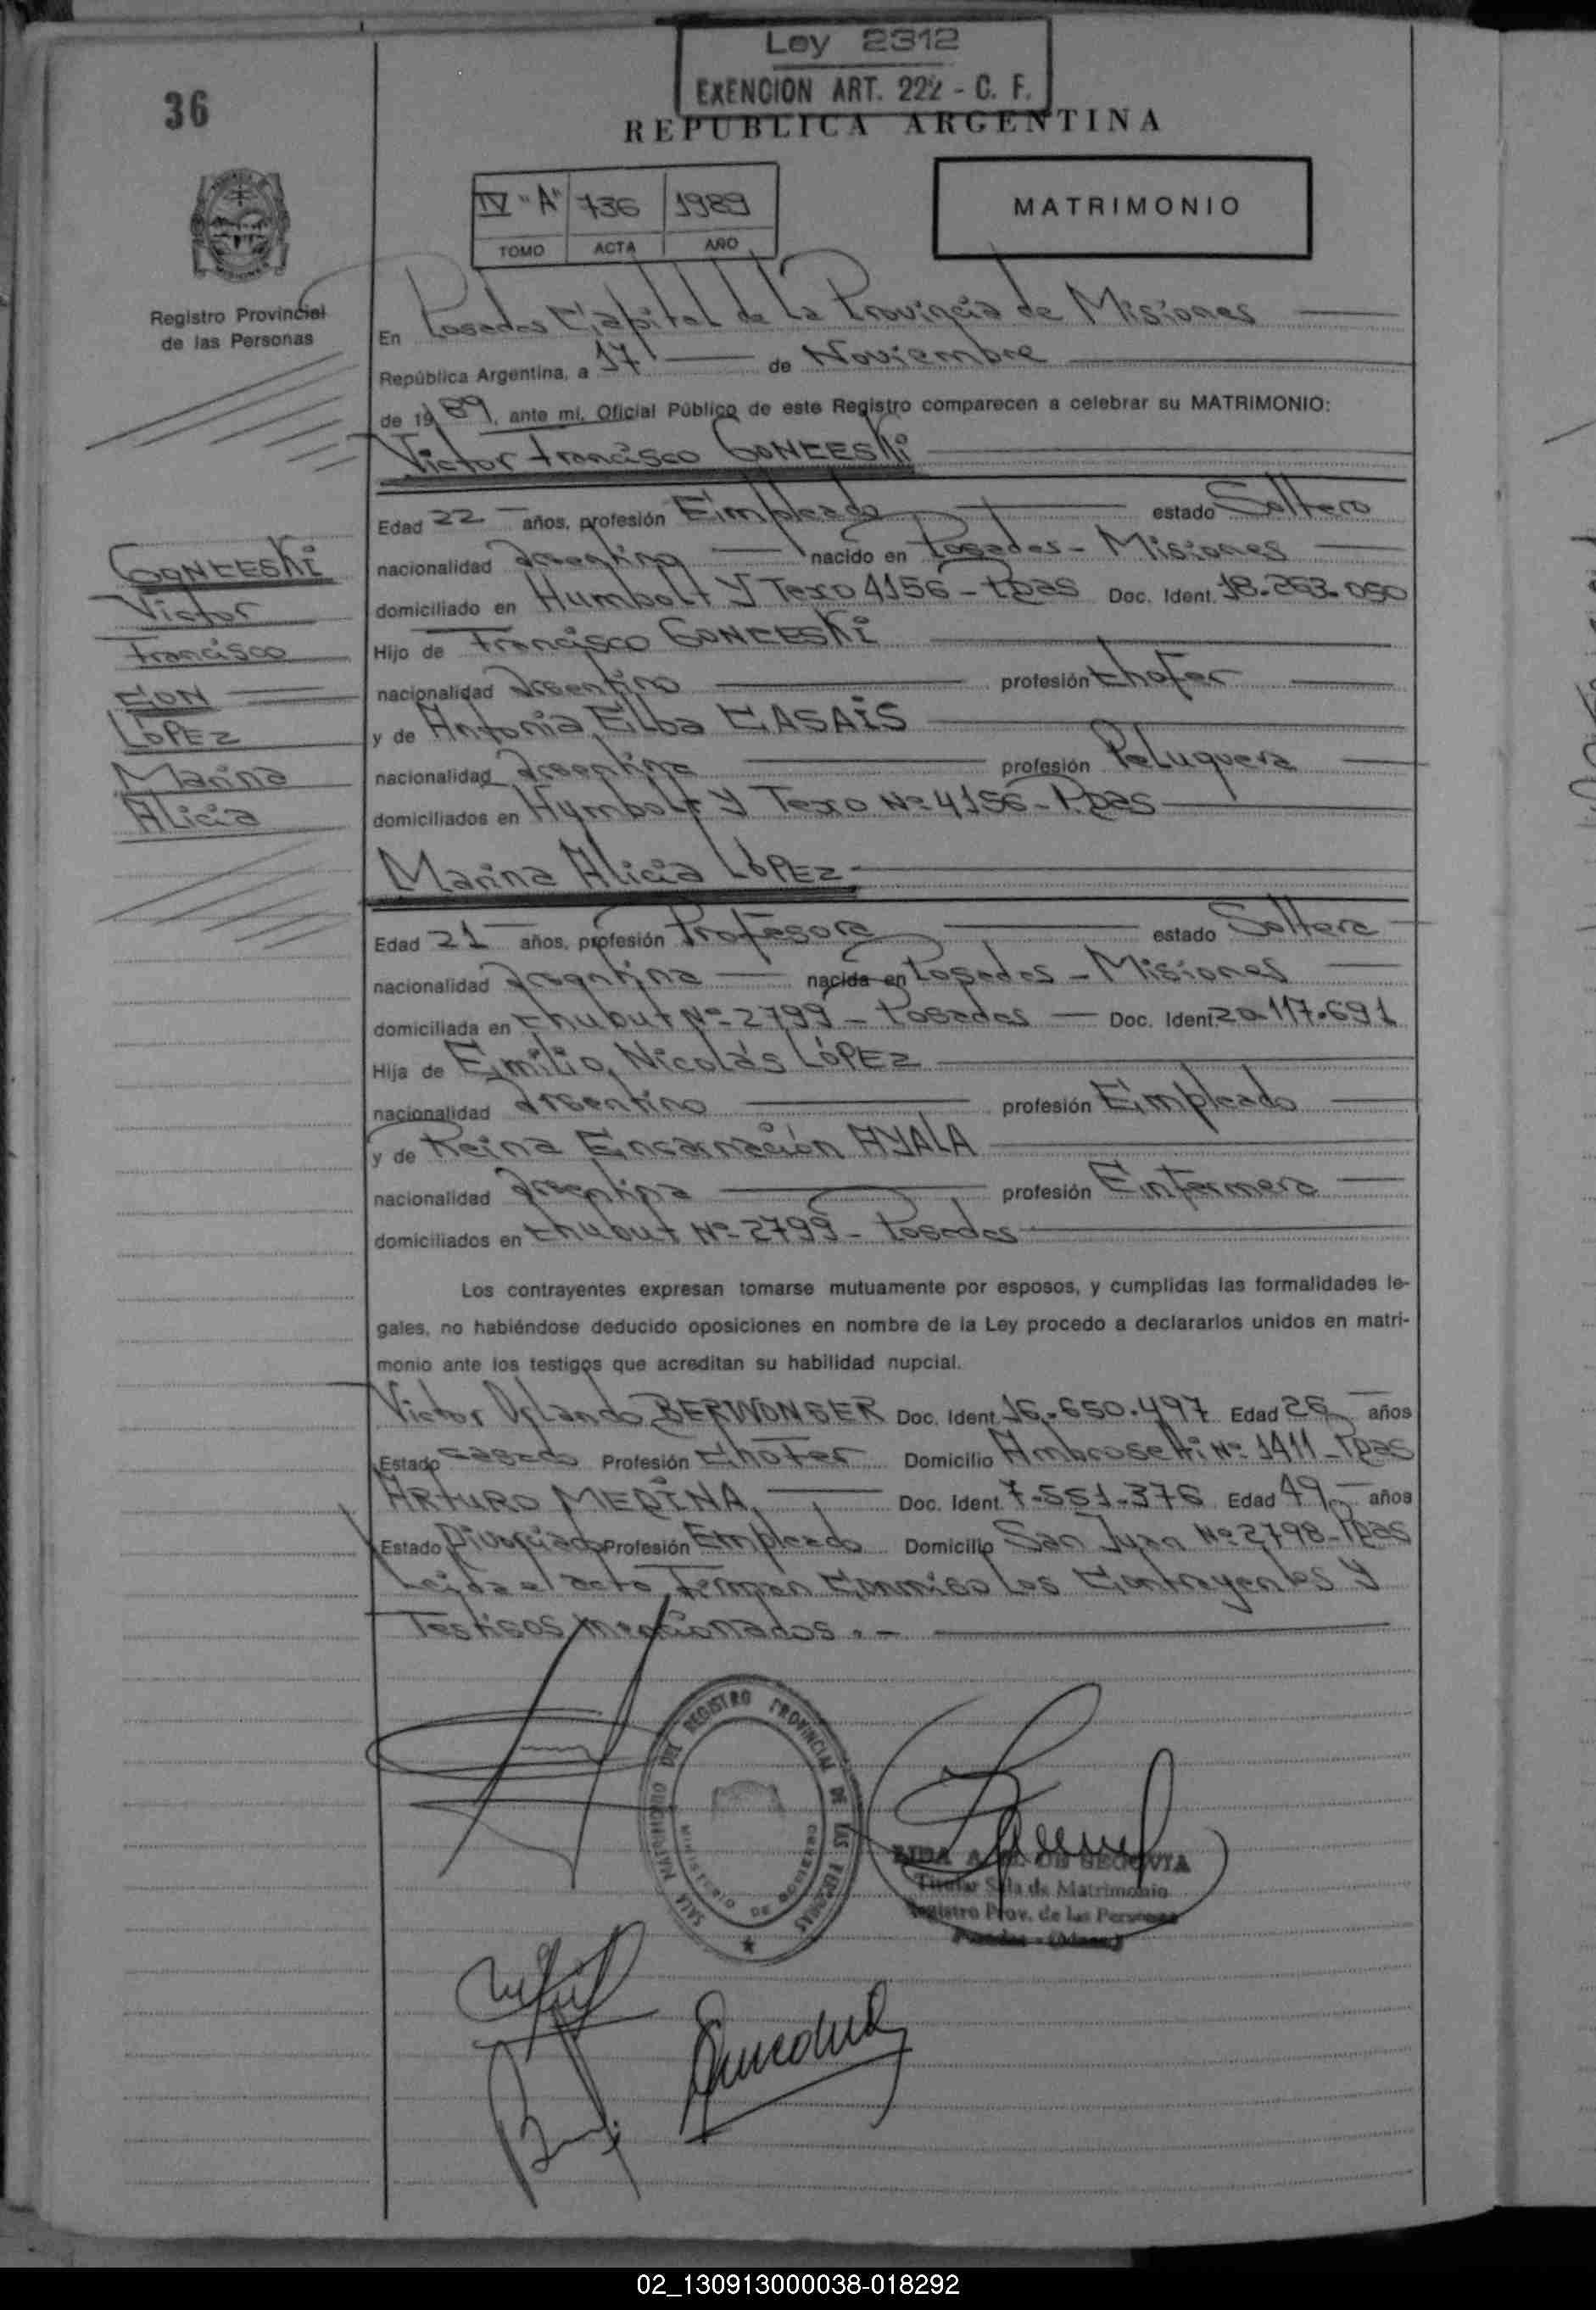 Ley 2312
EXENCION ART. 222 - C. F.
36
REPUBLICA ARGENTINA
IV "A" 736 1989
TOMO ACTA AÑO
MATRIMONIO
Registro Provincial
de las Personas
En Posadas Capital de la Provincia de Misiones
República Argentina, a 17 de Noviembre
de 1989, ante mí, Oficial Público de este Registro comparecen a celebrar su MATRIMONIO:
Victor Francisco GONCESKi
Edad 22 años, profesión Empleado estado Soltero
nacionalidad Argentino nacido en Posadas - Misiones
domiciliado en Humbolt y Texo 4156 - Pdas Doc. Ident. 18.263.050
Hijo de Francisco GONCESKi
nacionalidad Argentino profesión Chofer
y de Antonia Elba CASAIS
nacionalidad Argentina profesión Peluquera
domiciliados en Humbolt y Texo Nº 4156 - Pdas
GONCESKi
Victor
Francisco
CON
LOPEZ
Marina
Alicia
Marina Alicia LÓPEZ
Edad 21 años, profesión Profesora estado Soltera
nacionalidad Argentina nacida en Posadas - Misiones
domiciliada en Chubut Nº 2799 - Posadas Doc. Ident. 20.117.691
Hija de Emilio Nicolás LÓPEZ
nacionalidad Argentino profesión Empleado
y de Reina Encarnación AYALA
nacionalidad Argentina profesión Enfermera
domiciliados en Chubut Nº 2799 - Posadas
Los contrayentes expresan tomarse mutuamente por esposos, y cumplidas las formalidades le-
gales, no habiéndose deducido oposiciones en nombre de la Ley procedo a declararlos unidos en matri-
monio ante los testigos que acreditan su habilidad nupcial.
Victor Orlando BERWONGER Doc. Ident. 16.650.497 Edad 26 años
Estado Casado Profesión Chofer Domicilio Ambrosetti Nº 1411 - Pdas
ARTURO MEDINA Doc. Ident. 7.551.376 Edad 49 años
Estado Divorciado Profesión Empleado Domicilio San Juan Nº 2798 - Pdas
Leída el acta, Firman Conmigo los Contrayentes y
Testigos mencionados . -
SALA MATRIMONIO DEL REGISTRO PROVINCIAL DE LAS PERSONAS
MINISTERIO DE GOBIERNO
DE SEGOVIA
Titular Sala de Matrimonio
Registro Prov. de las Personas
Posadas - (Mnes.)
02_130913000038-018292